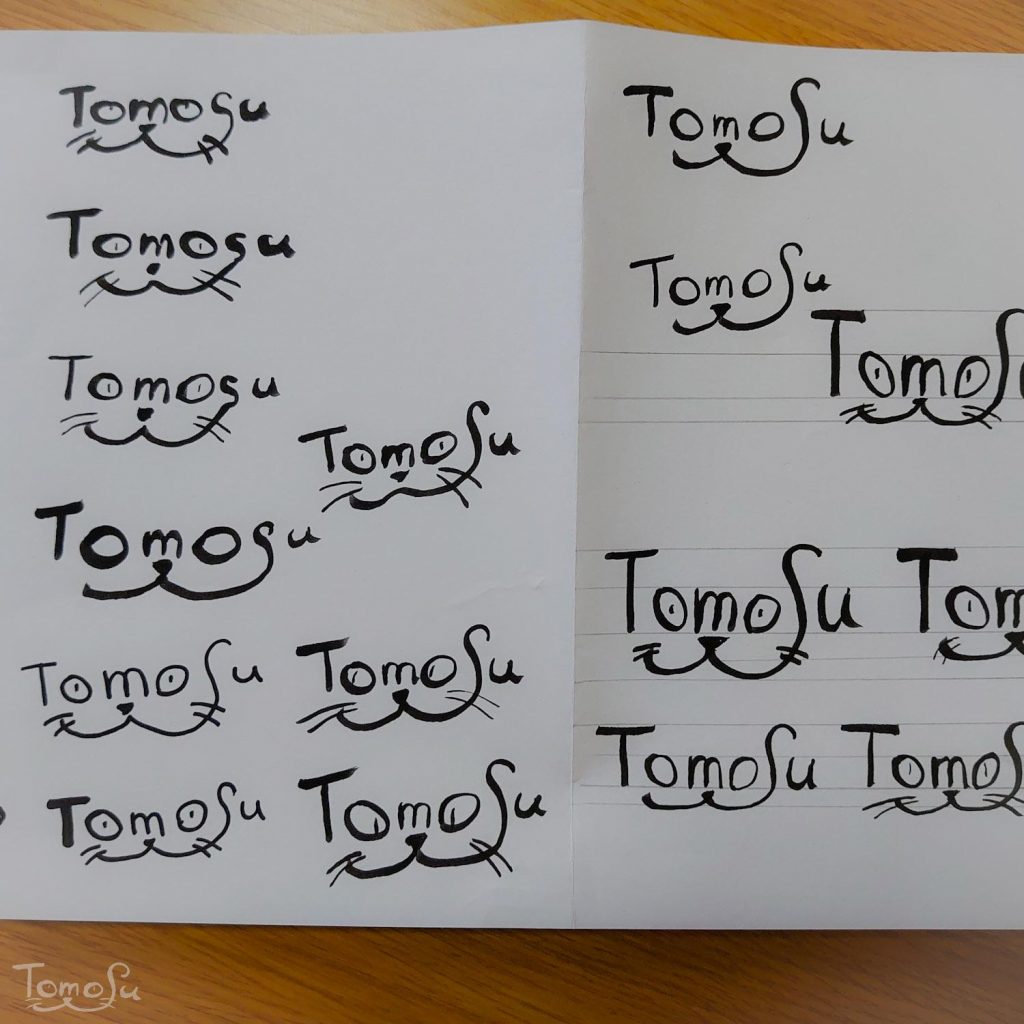 Tomosu
Tomosu
Tomosu
Tomosu
Tomosu
Tomosu
Tomosu
Tomosu
Tomosu
Tomosu
Tomosu
TomoS
Tomosu
Tom
Tomosu
Tomos
Tomosu